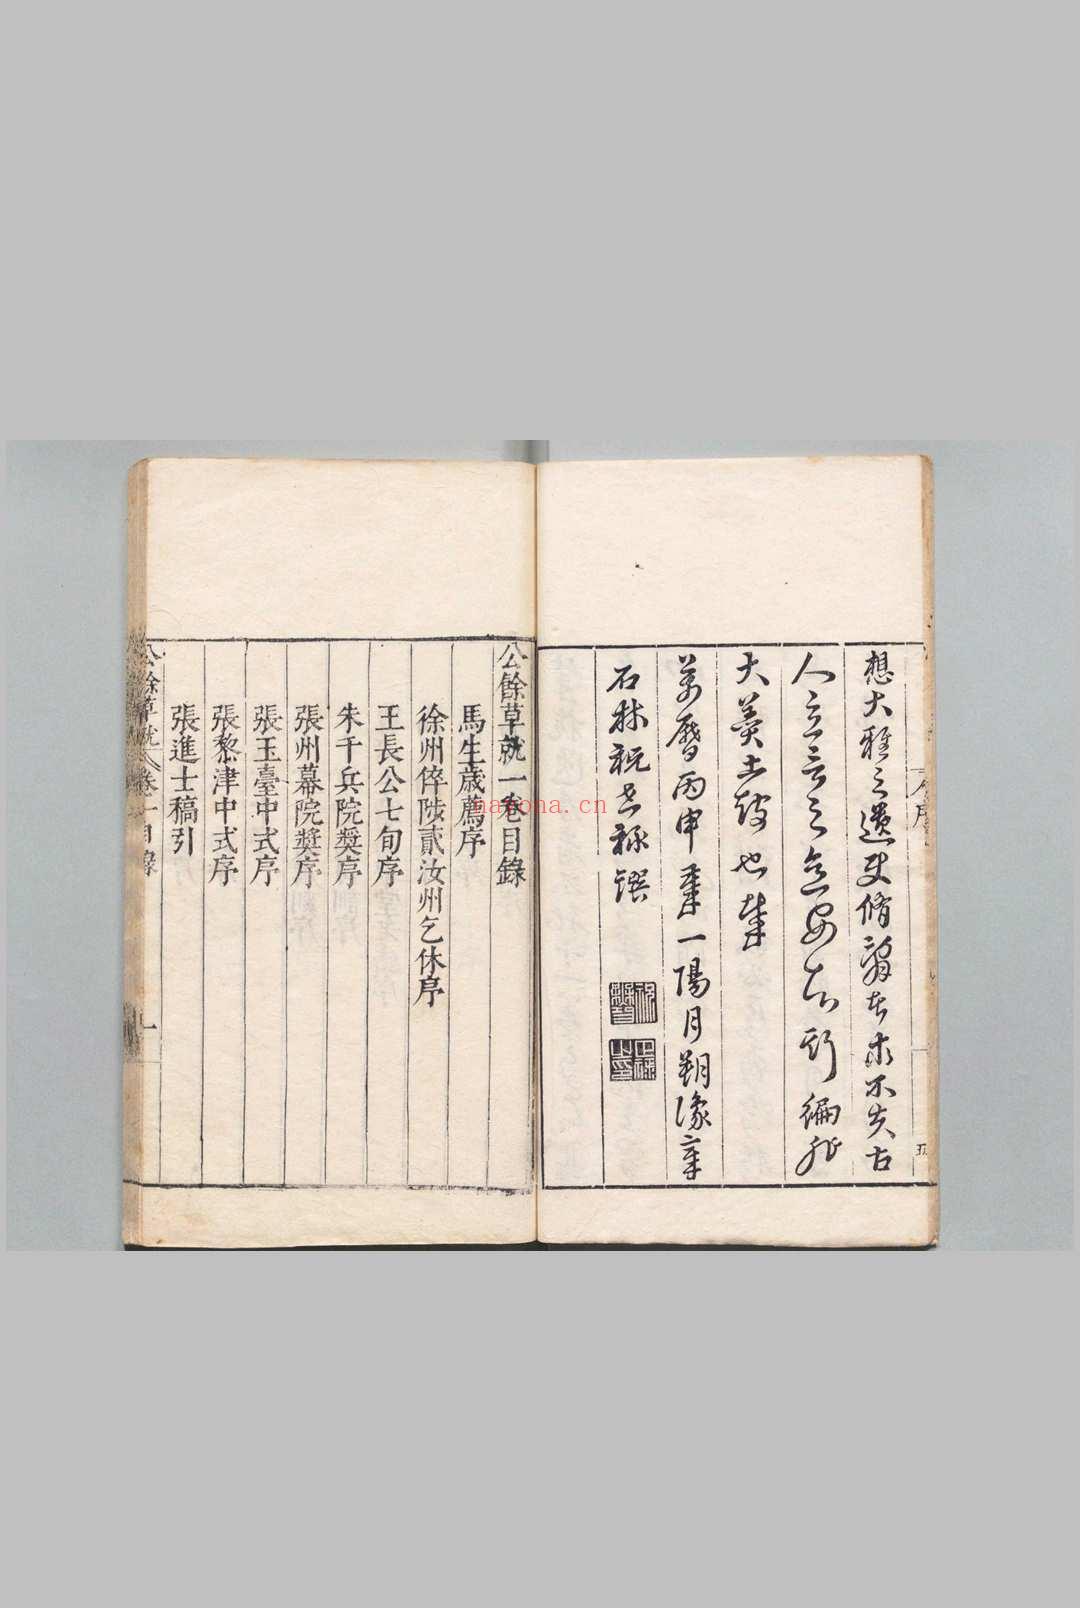 想大雅之遺叟脩翁老求不失古
人立言之意安知斯編非
大羮土鼓也𫆀
萬曆丙申季一陽月朔豫章
石林祝世祿譔
序
五
公餘草就一卷目錄
馬生歲薦序
徐州倅陟貳汝州乞休序
王長公七旬序
朱千兵院奬序
張州幕院奬序
張玉臺中式序
張黎津中式序
張進士稿引
公餘草就 卷一目錄
一
nayona.cn